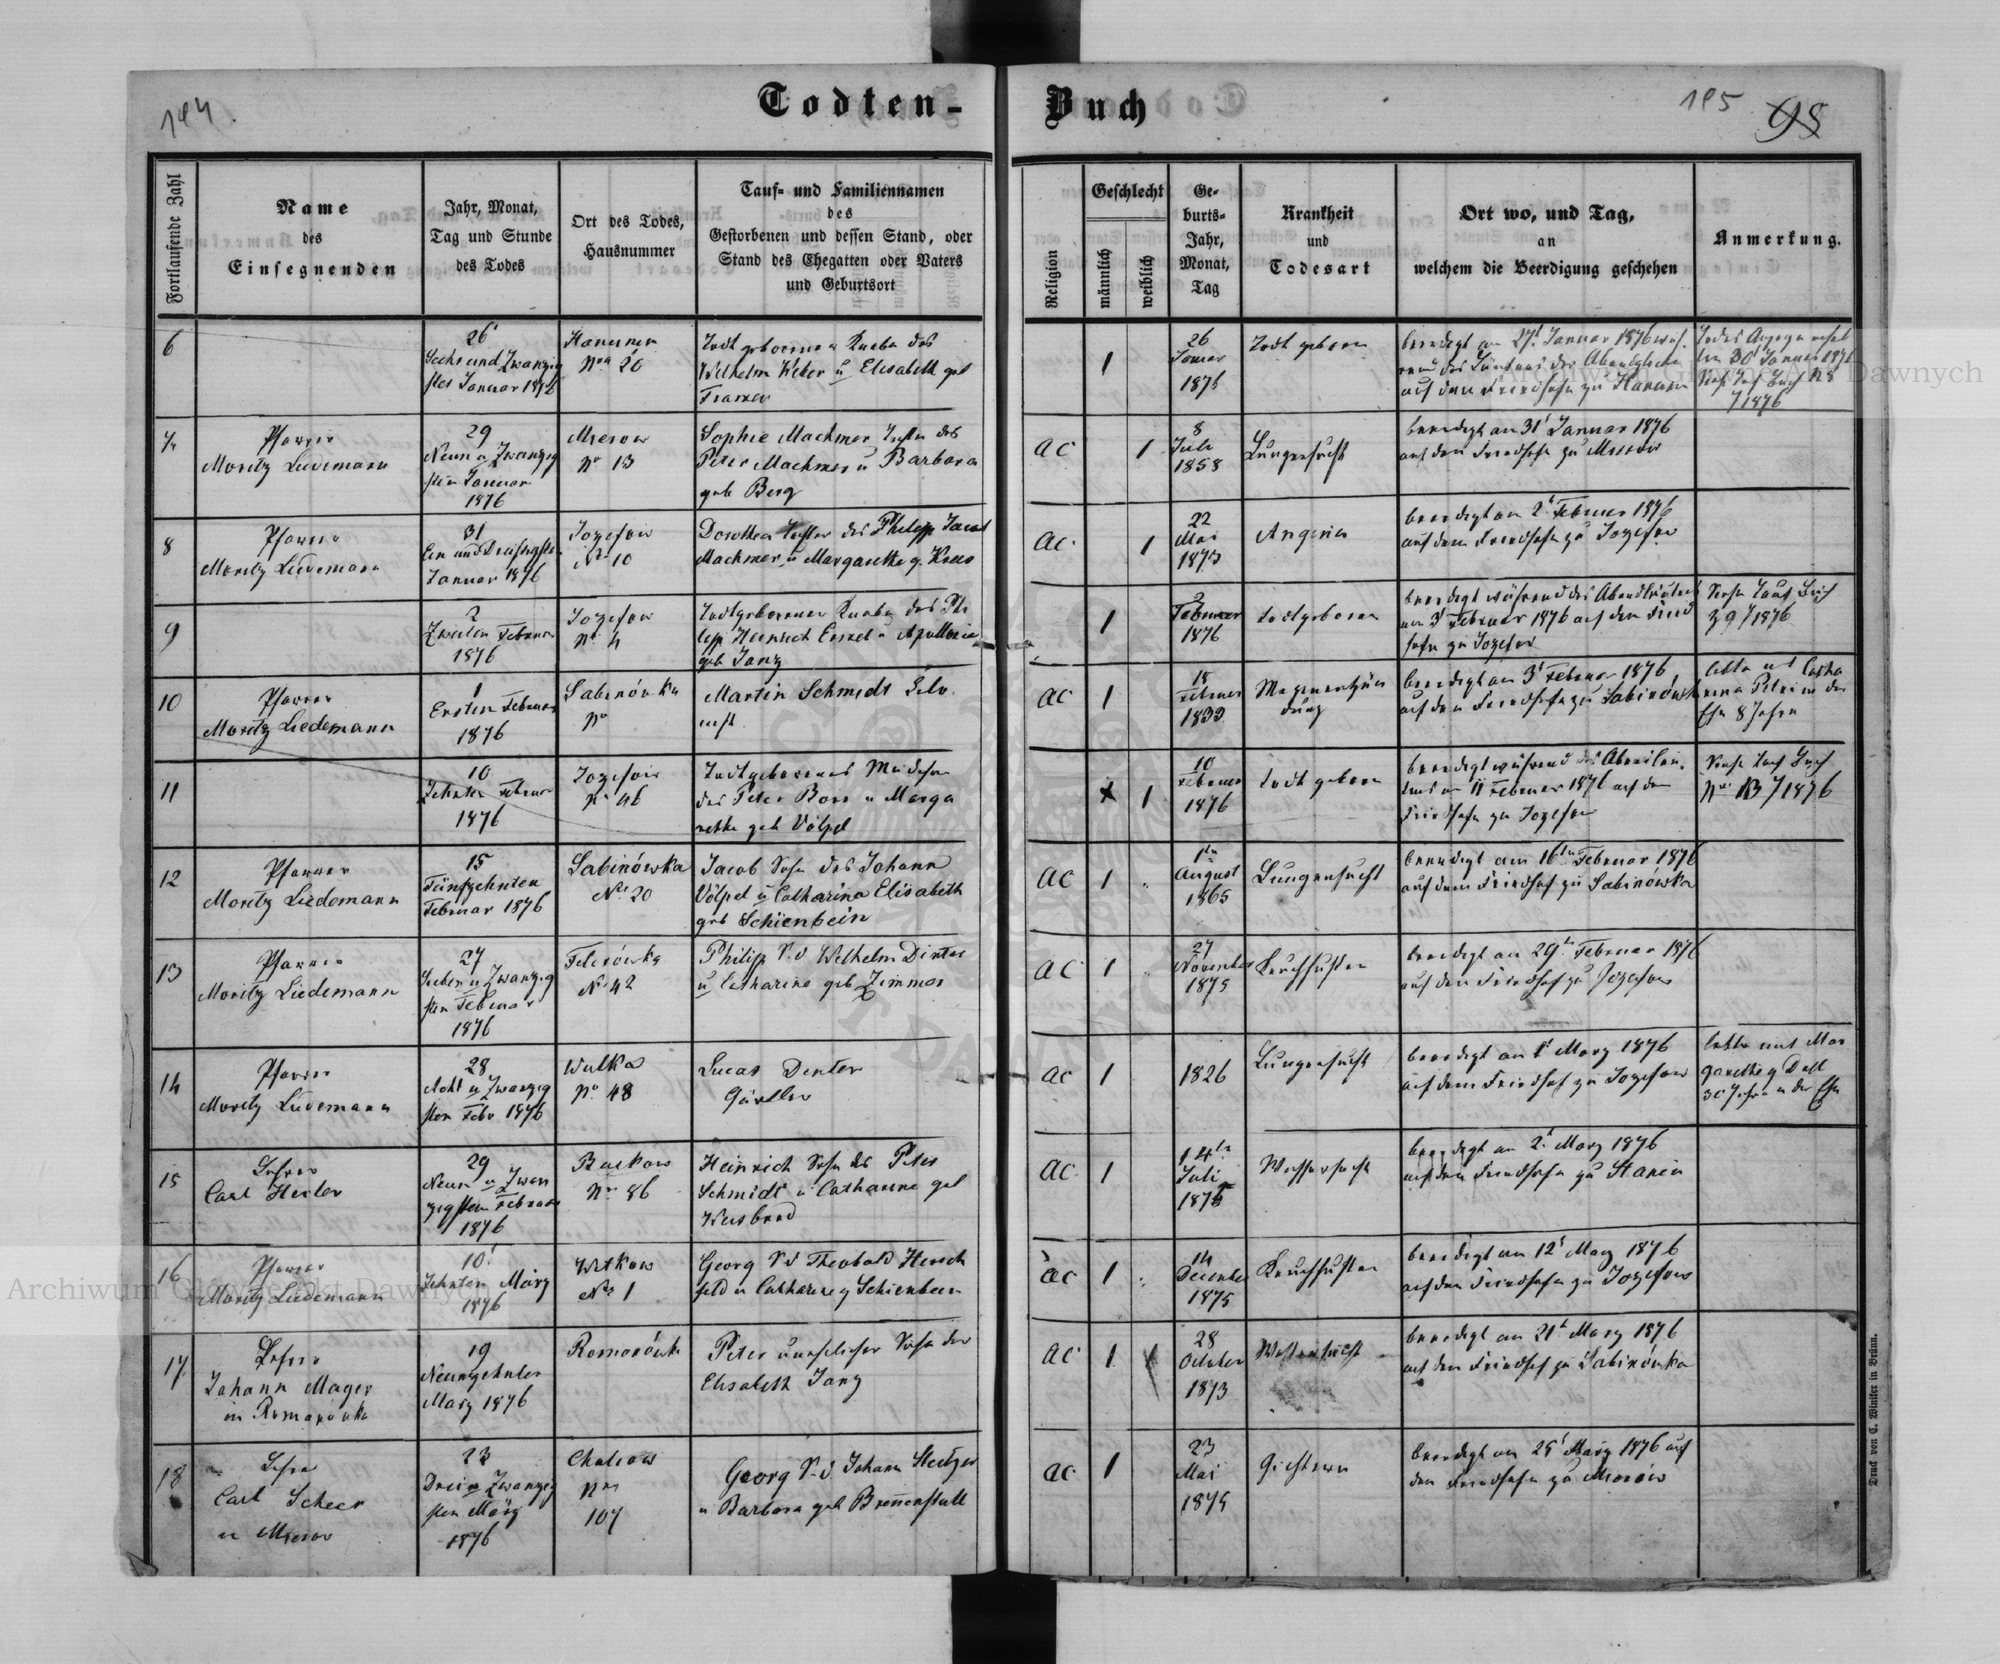 194.
Todten-Buch
195
98
Fortlaufende Zahl
Name
des
Einsegnenden
Jahr, Monat,
Tag und Stunde
des Todes
Ort des Todes,
Hausnummer
Tauf- und Familiennamen
des
Gestorbenen und dessen Stand, oder
Stand des Ehegatten oder Vaters
und Geburtsort
Religion
Geschlecht
männlich
weiblich
Ge-
burts-
Jahr,
Monat,
Tag
Krankheit
und
Todesart
Ort wo, und Tag,
an
welchem die Beerdigung geschehen
Anmerkung.
6
26
Sechs und Zwanzig
sten Januar 1876
Hanunin
Nro 20
Todtgeborener Knabe des
Wilhelm Weber u Elisabeth geb
1
26
Januar
1876
Todt geboren
beerdigt am 27t Januar 1876
auf dem Friedhofe zu Hanunin
30t Januar 1876
/1876
7.
Pfarrer
Moritz Liedemann
29
Neun u Zwanzig
sten Januar
1876
Mierow
No 13
Sophie Machmer Tochter des
Peter Machmer u Barbara
geb Berg
ac
1
8
Juli
1858
Lungensucht
beerdigt am 31t Januar 1876
auf dem Friedhofe zu Mierow
8
Pfarrer
Moritz Liedemann
31
Ein und Dreißigsten
Januar 1876
Jozefow
No 10
Dorothea Tochter des Philipp Jacob
Machmer u Margarethe g. Kreus
ac.
1
22
Mai
1873
Angina
beerdigt am 2t Februar 1876
auf dem Friedhofe zu Jozefow
9
2
Zweiten Februar
1876
Jozefow
No. 4
Todtgeborener Knabe des Phi
lipp Heinrich Enzel u Apollonia
geb Janz
1
2
Februar
1876
todtgeboren
beerdigt während des Abendläutens
am 3t Februar 1876 auf dem Fried
hofe zu Jozefow
Siehe Taufbuch
Z 9 /1876
10
Pfarrer
Moritz Liedemann
1
Ersten Februar
1876
Sabinówka
No
Martin Schmidt
ac
1
18
Februar
1833
Magenentzün
dung
beerdigt am 3t Februar 1876
auf dem Friedhofe zu Sabinówka
lebte mit Catha
rina Petri in der
Ehe 8 Jahre
11
10
Zehnten Februar
1876
Jozefow
No 46
Todtgeborenes Mädchen
des Peter Bors u Marga
rethe geb Völpel
1
10
Februar
1876
todt geboren
beerdigt während des Abendläu-
tens am 11 Februar 1876 auf dem
Friedhofe zu Jozefow
Siehe Tauf Buch
Nro 13 /1876
12
Pfarrer
Moritz Liedemann
15
Fünfzehnten
Februar 1876
Sabinówka
No 20
Jacob Sohn des Johann
Völpel u Catharina Elisabeth
geb Schienbein
ac
1
1ten
August
1865
Lungensucht
beerdigt am 16ten Februar 1876
auf dem Friedhof zu Sabinówka
13
Pfarrer
Moritz Liedemann
27
Sieben u Zwanzig
sten Februar
1876
No 42
Philipp S. d Wilhelm Dinter
u Catharine geb Zimmer
ac
1
27
November
1875
Keuchhusten
beerdigt am 29ten Februar 1876
auf dem Friedhof zu Jozefow
14
Pfarrer
Moritz Liedemann
28
Acht u Zwanzig
sten Febr 1876
Wulka
No 48
Lucas Dinter
ac
1
1826
Lungensucht
beerdigt am 1t März 1876
auf dem Friedhof zu Jozefow
lebte mit Mar
garethe g Dell
30 Jahre in der Ehe
15
Lehrer
Carl Hexler
29
Neun u Zwan
zigsten Februar
1876
No 86
Heinrich Sohn des Peter
Schmidt u Catharine geb
Weisbrod
ac
1
14ten
Juli
1875
Wassersucht
beerdigt am 2t März 1876
auf dem Friedhofe zu Stanin
16
Pfarrer
Moritz Liedemann
10t
Zehnten März
1876
Witkow
No 1
Georg S. d Theobald Hersch
feld u Catharine g Schienbein
ac
1
14
December
1875
Keuchhusten
beerdigt am 12t März 1876
auf dem Friedhofe zu Jozefow
17.
Lehrer
Johann Mager
in Romanówka
19
Neunzehnten
März 1876
Romanówka
Peter unehelicher Sohn der
Elisabeth Janz
ac
1
28
October
1873
Wassersucht
beerdigt am 21t März 1876
auf dem Friedhof zu Sabinówka
18
Lehrer
Carl Scheer
in Mierow
23
Drei u Zwanzig
sten März
1876
Cholojow
Nro
107
Georg S. d Johann
u Barbara geb Brennenstuhl
ac
1
23
Mai
1875
Gichtern
beerdigt am 25t März 1876 auf
dem Friedhofe zu Mierów
Druck von C. Winiker in Brünn.
Archiwum Główne Akt Dawnych
Archiwum Główne Akt Dawnych